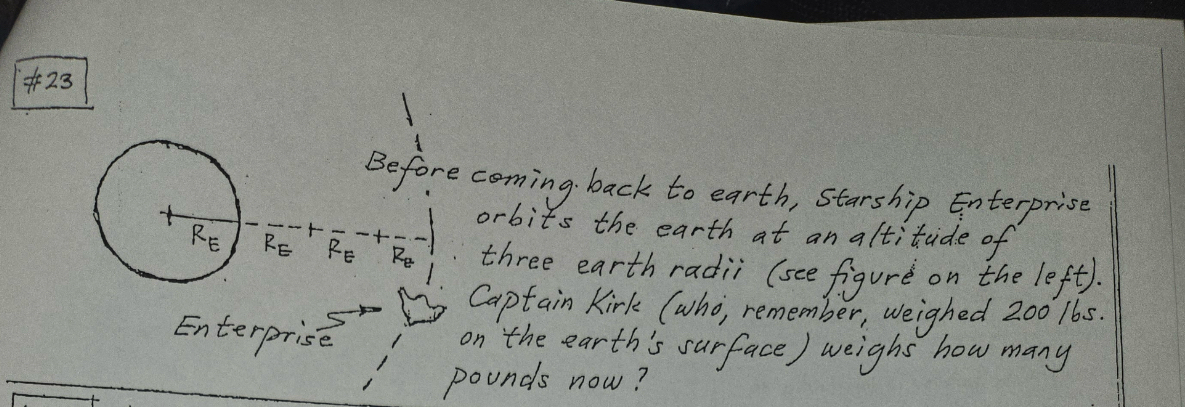 #23
Before coming back to earth, Starship Enterprise
orbits the earth at an altitude of
three earth radii (see figure on the left).
Captain Kirk (who, remember, weighed 200 lbs.
on the earth's surface) weighs how many
pounds now?
RE RE RE RE
Enterprise